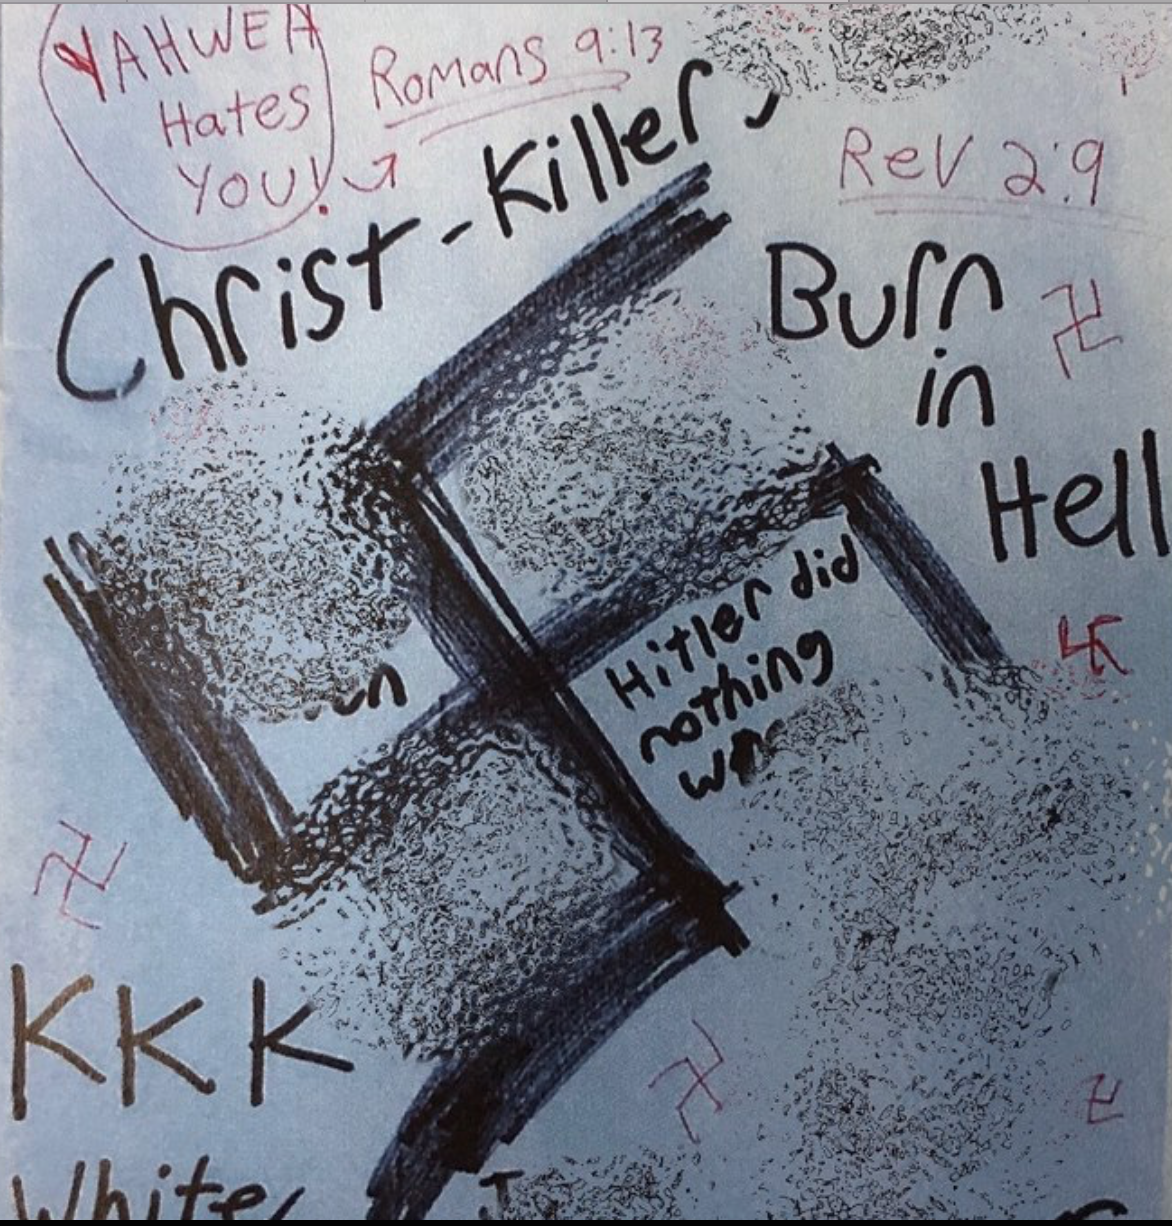 YAHWEH
Hates
YOU!
Romans 9:13
Christ-Killers
Rev 2:9
Burn
in
Hell
Hitler did
nothing
KKK
White